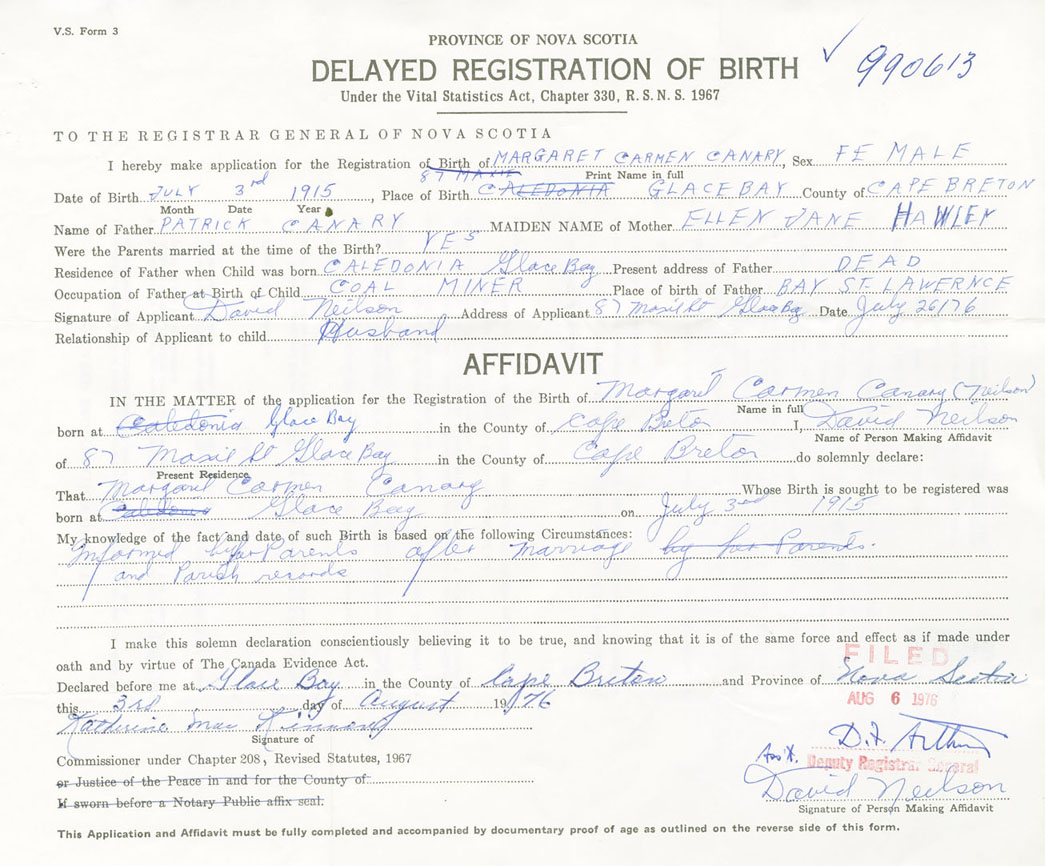 V.S. Form 3
PROVINCE OF NOVA SCOTIA
990613
DELAYED REGISTRATION OF BIRTH
Under the Vital Statistics Act, Chapter 330, R.S.N.S. 1967
TO THE REGISTRAR GENERAL OF NOVA SCOTIA
I hereby make application for the Registration of Birth of MARGARET CARMEN CANARY, Sex FEMALE
87 MAXIE Print Name in full
Date of Birth JULY 3rd 1915, Place of Birth CALEDONIA GLACE BAY County of CAPE BRETON
Month Date Year
Name of Father PATRICK CANARY MAIDEN NAME of Mother ELLEN JANE HAWLEY
Were the Parents married at the time of the Birth? YES
Residence of Father when Child was born CALEDONIA Glace Bay Present address of Father DEAD
Occupation of Father at Birth of Child COAL MINER Place of birth of Father BAY ST. LAWERNCE
Signature of Applicant David Neilson Address of Applicant 87 Maxie St Glace Bay Date July 26/76
Relationship of Applicant to child Husband
AFFIDAVIT
IN THE MATTER of the application for the Registration of the Birth of Margaret Carmen Canary (Neilson)
Name in full
born at Caledonia Glace Bay in the County of Cape Breton I, David Neilson
Name of Person Making Affidavit
of 87 Maxie St Glace Bay in the County of Cape Breton do solemnly declare:
Present Residence
That Margaret Carmen Canary Whose Birth is sought to be registered was
born at Caledonia Glace Bay on July 3rd 1915
My knowledge of the fact and date of such Birth is based on the following Circumstances:
Informed by her Parents after marriage by her Parents.
and Parish records
I make this solemn declaration conscientiously believing it to be true, and knowing that it is of the same force and effect as if made under
oath and by virtue of The Canada Evidence Act.
FILED
Declared before me at Glace Bay in the County of Cape Breton and Province of Nova Scotia
AUG 6 1976
this 3rd day of August 1976
Katherine Mac Kinnon
Signature of
D.F. Arthur
Commissioner under Chapter 208, Revised Statutes, 1967
Ass't. Deputy Registrar General
or Justice of the Peace in and for the County of
David Neilson
If sworn before a Notary Public affix seal.
Signature of Person Making Affidavit
This Application and Affidavit must be fully completed and accompanied by documentary proof of age as outlined on the reverse side of this form.